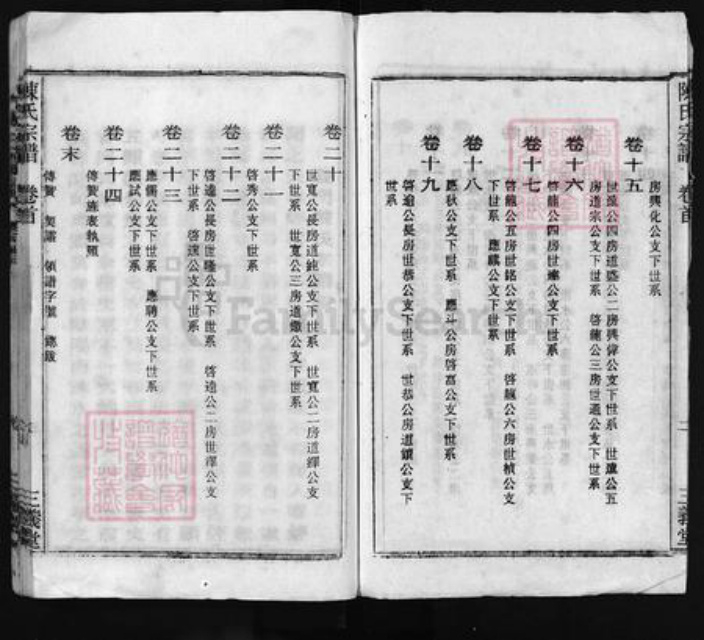 陳氏宗譜 卷首
三義堂
房興化公支下世系
卷十五
世遠公四房道盛公二房興偉公支下世系 世遠公五
房道宗公支下世系 啓龍公三房世通公支下世系
卷十六
啓龍公四房世達公支下世系
卷十七
啓龍公五房世銘公支下世系 啓龍公六房世楨公支
下世系 應麟公支下世系
卷十八
應秋公支下世系 應斗公房啓富公支下世系
卷十九
啓逾公長房世恭公支下世系 世恭公房道鎮公支下
世系
卷二十
世寬公長房道純公支下世系 世寬公二房道鐸公支
下世系 世寬公三房道鐓公支下世系
卷二十一
啓秀公支下世系
卷二十二
啓遠公長房世隆公支下世系 啓遠公二房世澤公支
下世系 啓遠公支下世系
卷二十三
應儒公支下世系 應聘公支下世系
應試公支下世系
卷二十四
傳贊旌表執照
卷末
傳贊 契議 領譜字號 總跋
陳氏宗譜 卷首
三義堂
FamilySearch